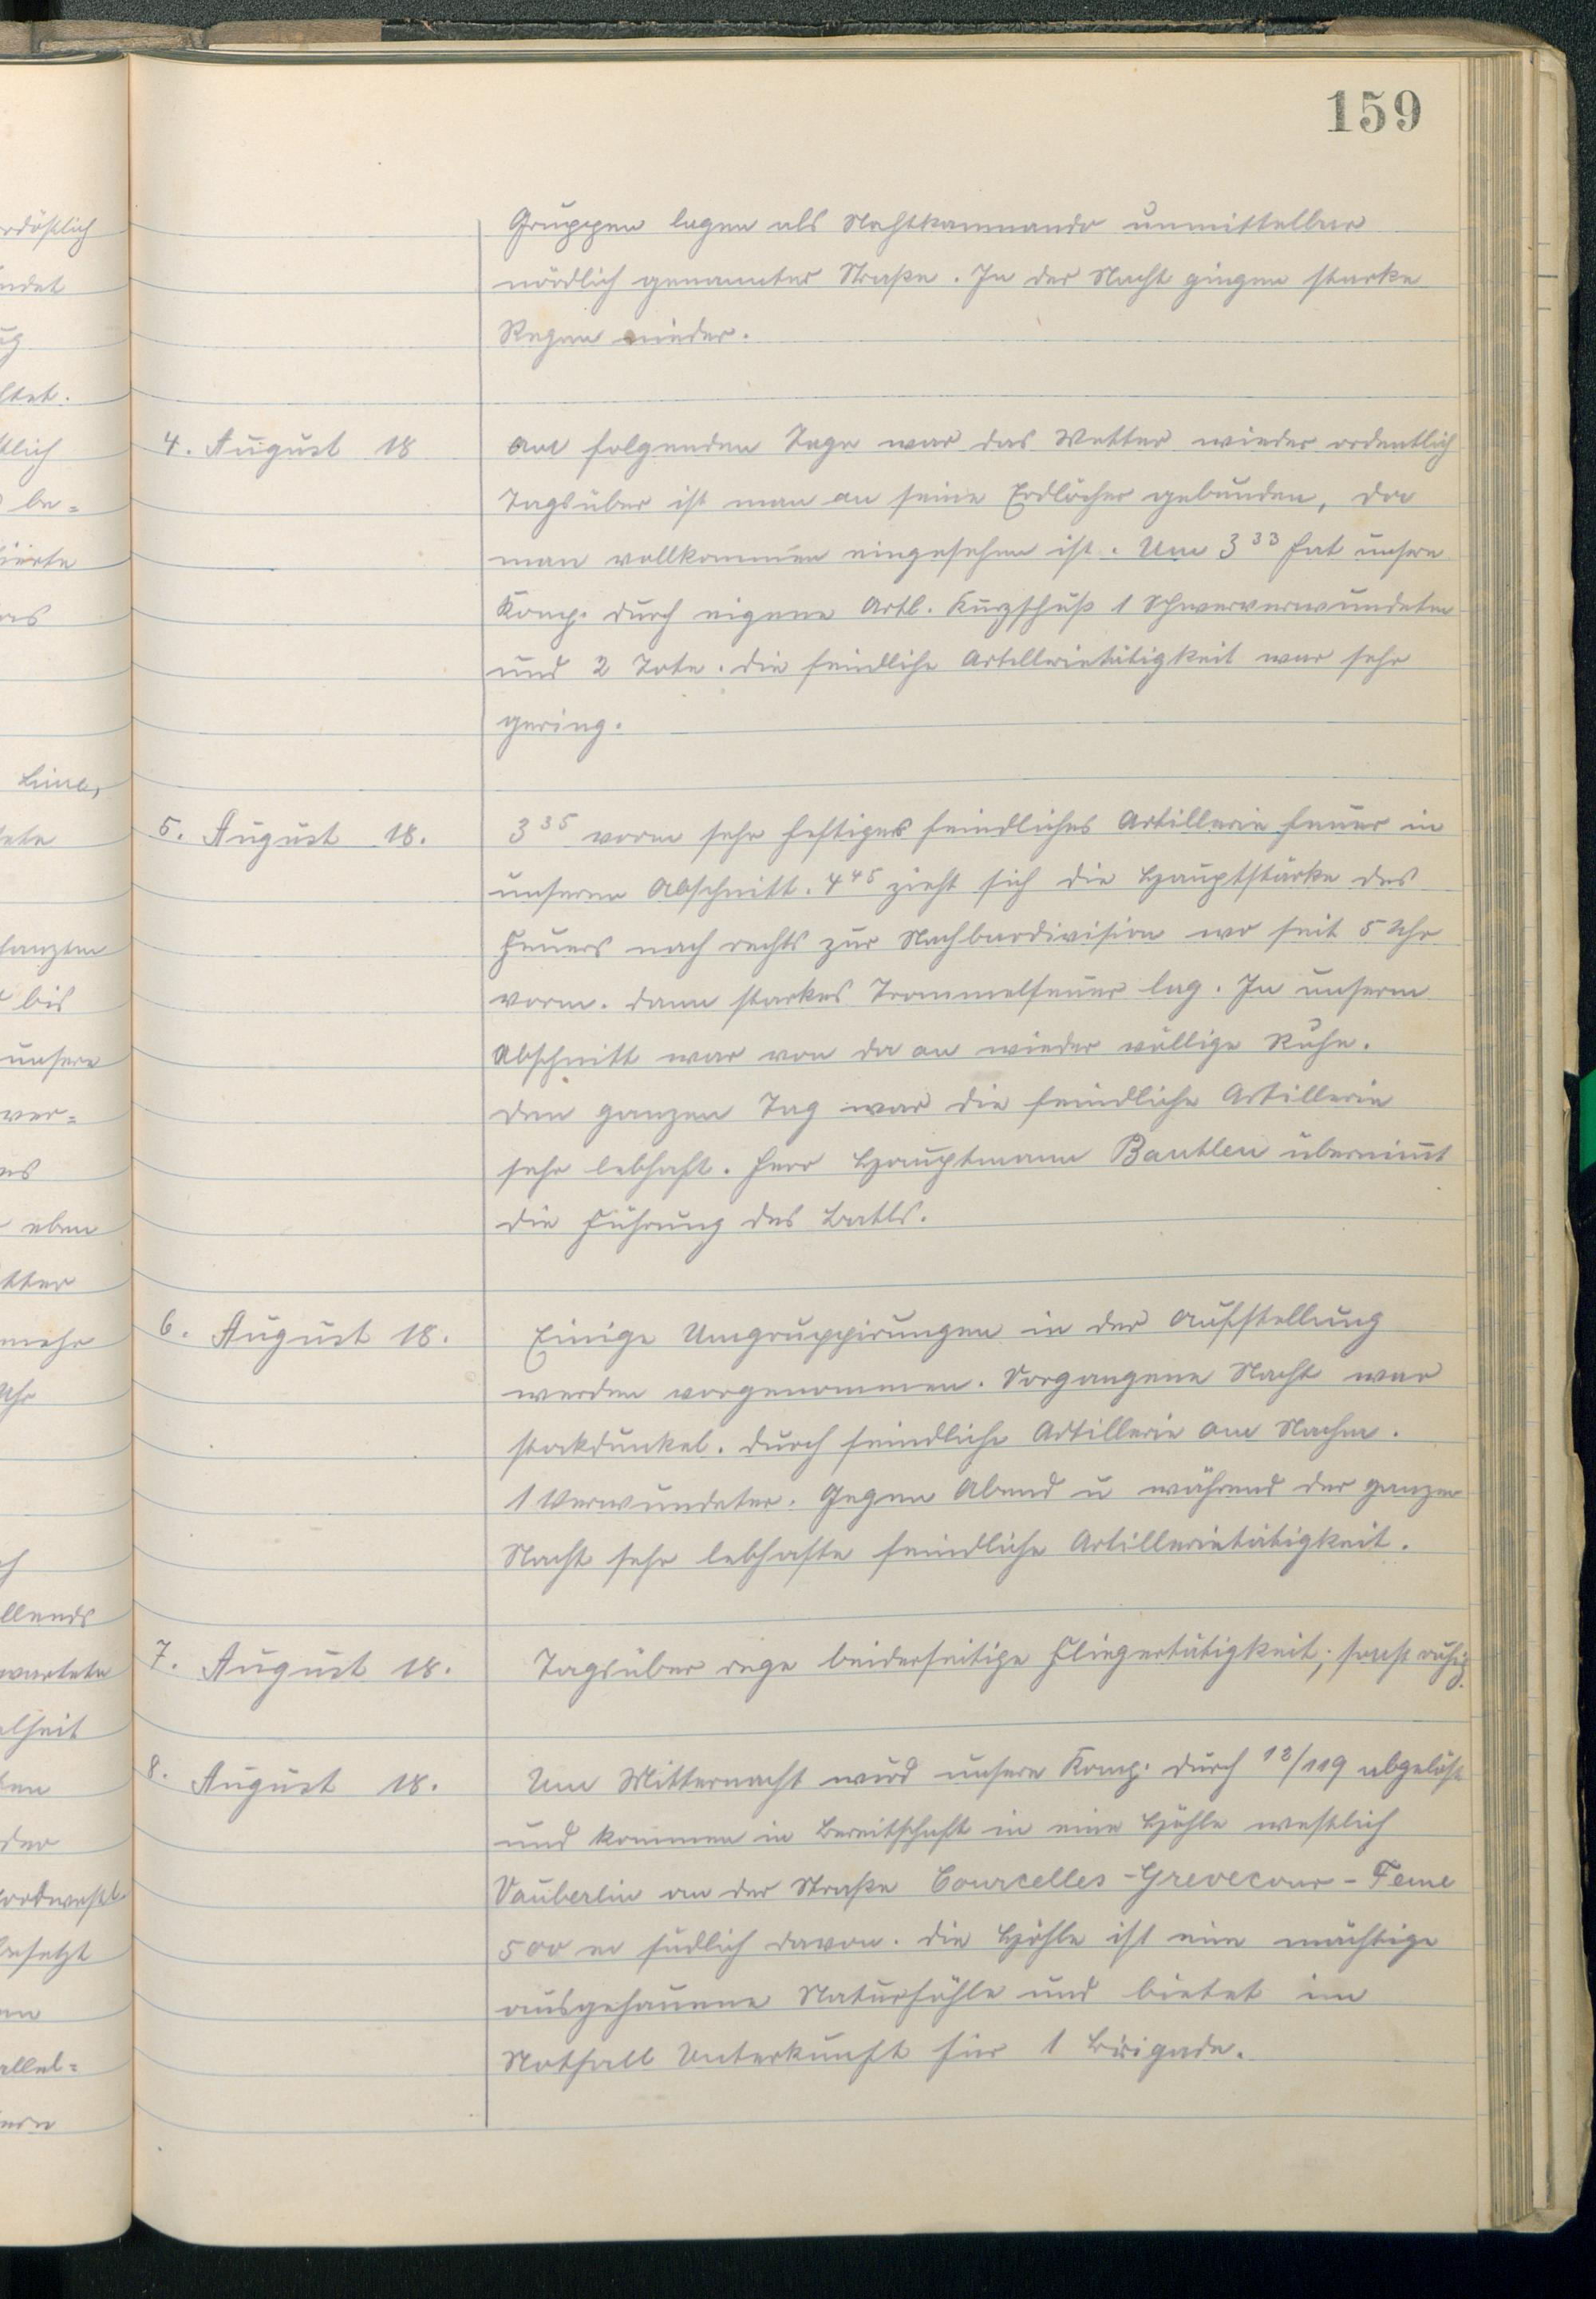 159
Gruppen lagen als Nachtkommando unmittelbar
nördlich genannter Straße. In der Nacht gingen starke
Regen nieder.
4. August 18 Am folgenden Tage war das Wetter wieder ordentlich
Tagsüber ist man an seine Erdlöcher gebunden, da
man vollkommen eingesehen ist. Um 3 33 hat unsere
Komp. durch eigene Artl. Kurzschuß 1 Schwerverwundeten
und 2 Tote. Die feindliche Artillerietätigkeit war sehr
gering.
5. August 18. 3 35 vorm sehr heftiges feindliches Artillerie feuer in
unserem Abschnitt. 4 45 zieht sich die Hauptstärke des
Feuers nach rechts zur Nachbardivision wo seit 5 Uhr
vorm. dann starkes Trommelfeuer lag. In unserm
Abschnitt war von da an wieder völlige Ruhe.
Den ganzen Tag war die feindliche Artillerie
sehr lebhaft. Herr Hauptmann Bantlen übernimmt
die Führung des Batls.
6. August 18. Einige Umgruppirungen in der Aufstellung
werden vorgenommen. Vorgangene Nacht war
stockdunkel. Durch feindliche Artillerie am Nachm.
1 Verwundeter. Gegen Abend u während der ganzen
Nacht sehr lebhafte feindliche Artillerietätigkeit.
7. August 18. Tagsüber rege beiderseitige Fliegertätigkeit; sonst ruhig.
8. August 18. Um Mitternacht wird unsere Komp. durch 12/119 abgelöst
und kommen in Bereitschaft in eine Höhle westlich
Vauberlin an der Straße Courcelles - Grevecour - Feme
500 m südlich davon. Die Höhle ist eine mächtige
ausgehauene Naturhöhle und bietet im
Notfall Unterkunft für 1 Brigade.